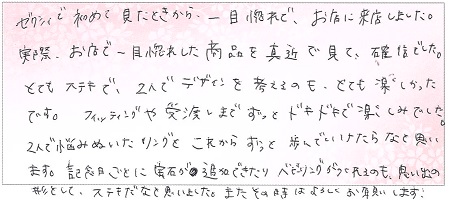 ゼクシィで初めて見たときから、一目惚れで、お店に来店しました。
実際、お店で一目惚れした商品を真近で見て、確信でした。
とてもステキで、2人でデザインを考えるのも、とても楽しかった
です。フィッティングや受渡しまでずっとドキドキで楽しみでした。
2人で悩みぬいたリングと これからずっと歩んでいけたらなと思い
ます。記念日ごとに宝石が追加できたり ベビーリングがつくれるのも、思い出の
形として、ステキだなと思いました。またその時はよろしくお願いします!